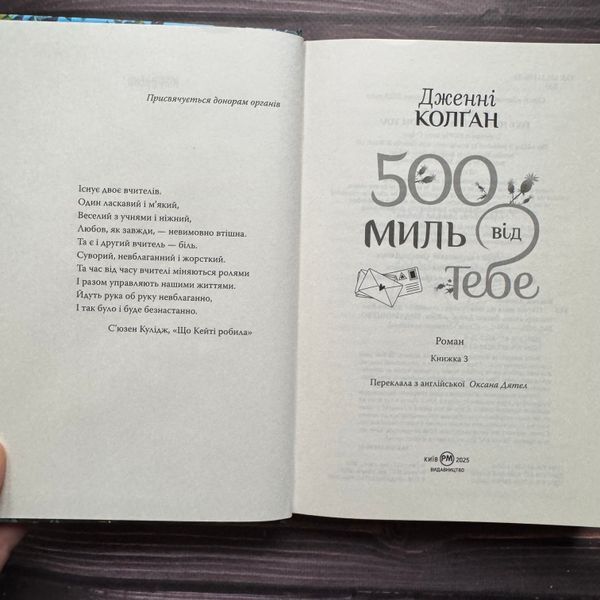 Присвячується донорам органів
Існує двоє вчителів.
Один ласкавий і м'який,
Веселий з учнями і ніжний,
Любов, як завжди, — невимовно втішна.
Та є і другий вчитель — біль.
Суворий, невблаганний і жорсткий.
Та час від часу вчителі міняються ролями
І разом управляють нашими життями.
Йдуть рука об руку невблаганно,
І так було і буде безнастанно.
С'юзен Кулідж, «Що Кейті робила»
Дженні
КОЛҐАН
500
МИЛЬ від
Тебе
Роман
Книжка 3
Переклала з англійської Оксана Дятел
КИЇВ РМ 2025
ВИДАВНИЦТВО